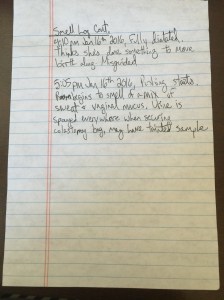 Smell Log Cont,
4:10 pm Jan 16th 2016, Fully dilated.
Thinks she's done something to move
birth along. Misguided
5:05 pm Jan 16th 2016, Pushing starts.
Room begins to smell of a mix of
sweat & vaginal mucus. Urine is
sprayed everywhere when securing
colostomy bag, may have tainted sample